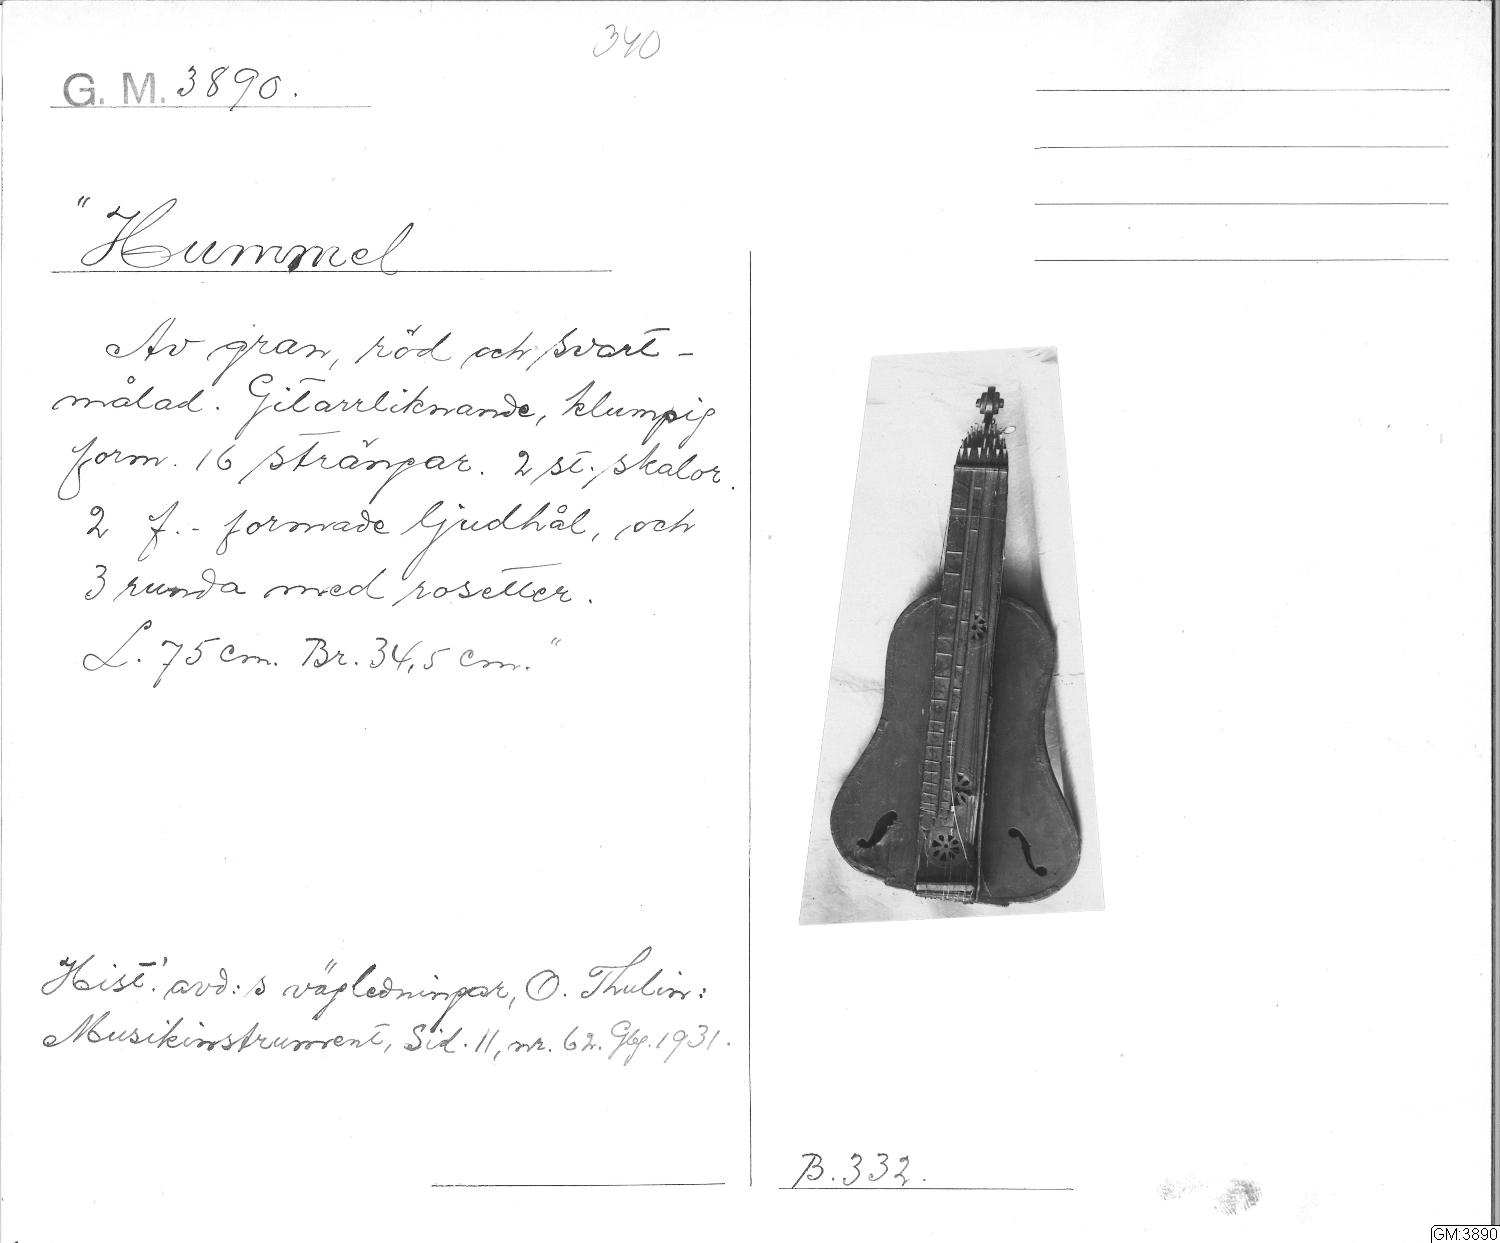 340
G. M. 3890.
"Hummel
Av gran, röd och svart-
målad. Gitarrliknande, klumpig
form. 16 strängar. 2 st. skalor.
2 f.- formade ljudhål, och
3 runda med rosetter.
L. 75 cm. Br. 34,5 cm."
Hist. avd:s vägledningar, O. Thulin:
Musikinstrument, Sid. 11, nr. 62. Gbg. 1931.
B. 332.
GM:3890